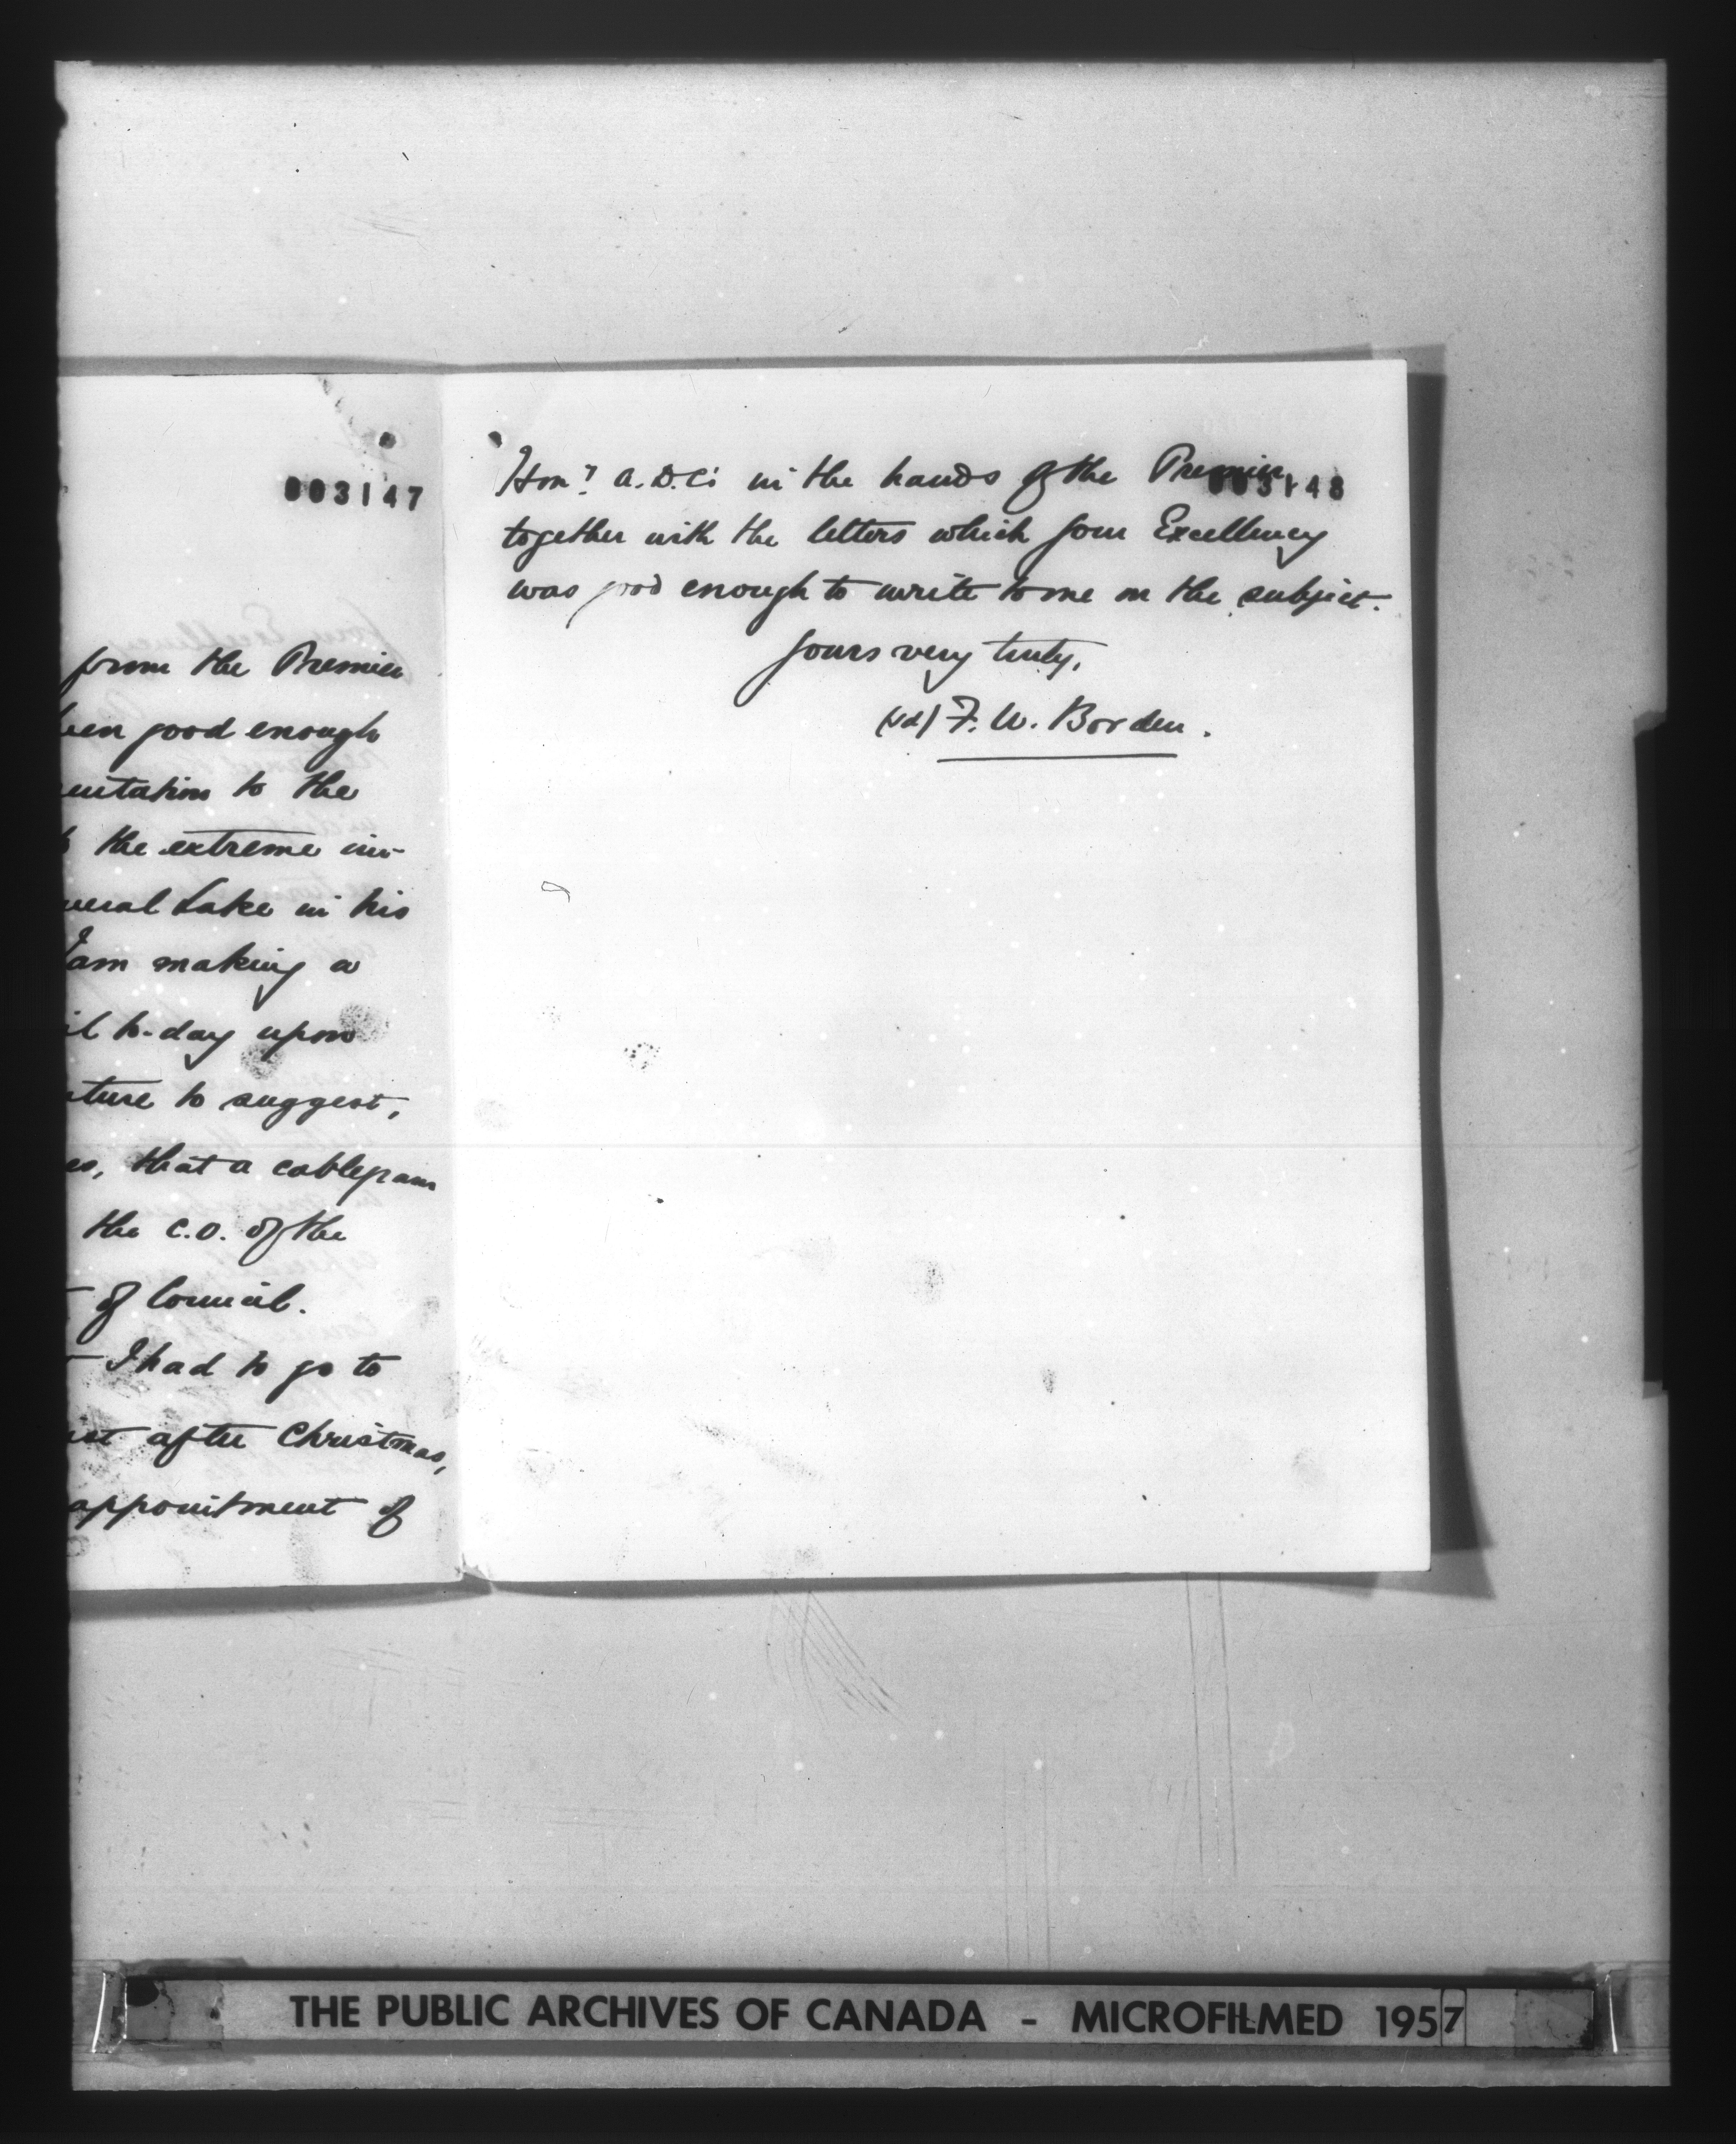 003147
from the Premier
been good enough
entation to the
the extreme im-
neral Lake in his
I am making a
il to-day upon
ture to suggest,
es, that a cablegram
the C.O. of the
of Council.
I had to go to
after Christmas,
appointment of
Hony A.D.C.'s in the hands of the Premier
003148
together with the letters which your Excellency
was good enough to write to me on the subject.
Yours very truly,
(sd) F. W. Borden.
THE PUBLIC ARCHIVES OF CANADA - MICROFILMED 1957